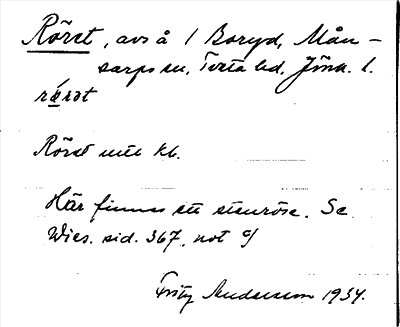 Röret, avs å 1 Boryd, Mån-
sarps sn, Tveta hd, Jönk. l.
rǿrət
Röret utt kb.
Här finnes ett stenröse. Se
Wies. sid. 367, not
Fritz Andersson 1934.